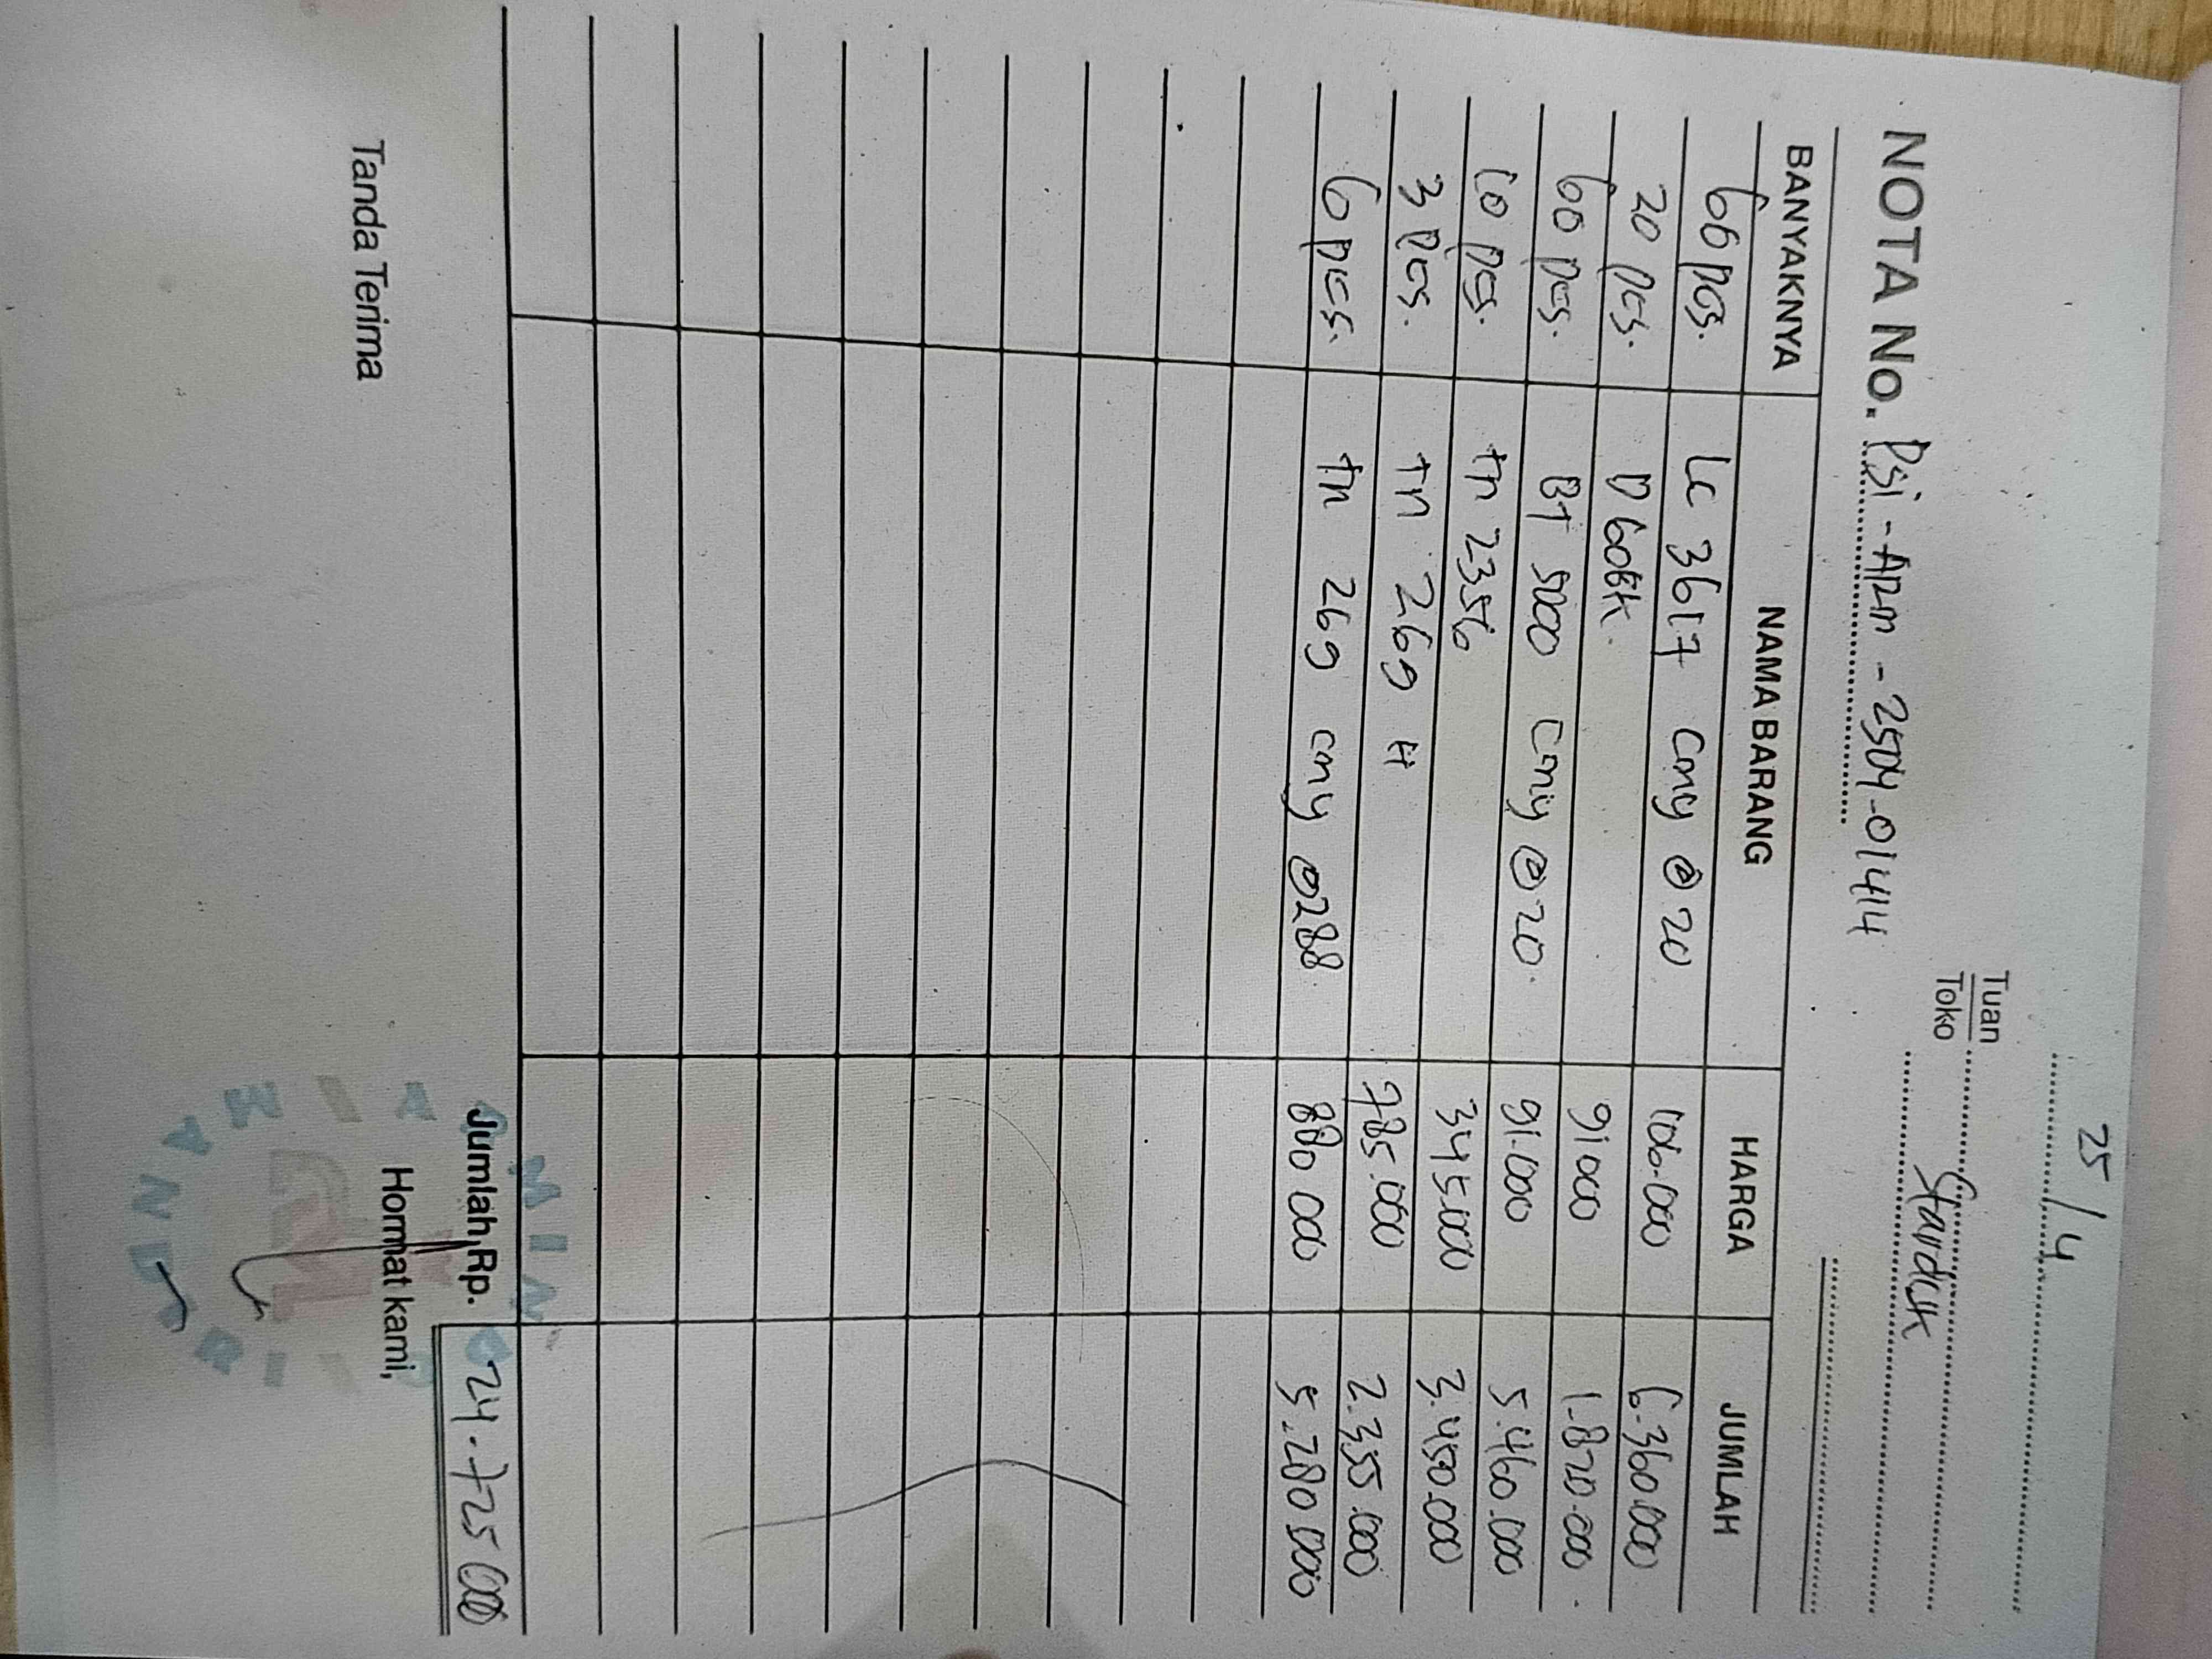 25/4
Tuan
Toko Starduk
NOTA No. Psi-Apm-2504-01414
BANYAKNYA NAMA BARANG HARGA JUMLAH
60 pcs. LC 3617 Cmy @ 20 106.000 6.360.000
20 pcs. D60BK. 91.000 1.820.000.
60 pcs. BT 5000 Cmy @ 20. 91.000 5.460.000
10 pcs. tn 2356 345.000 3.450.000
3 pcs. tn 269 H 785.000 2.355.000
6 pcs. tn 269 cmy @288 880 000 5.280 000
Jumlah Rp. 24.725 000
Tanda Terima Hormat kami,